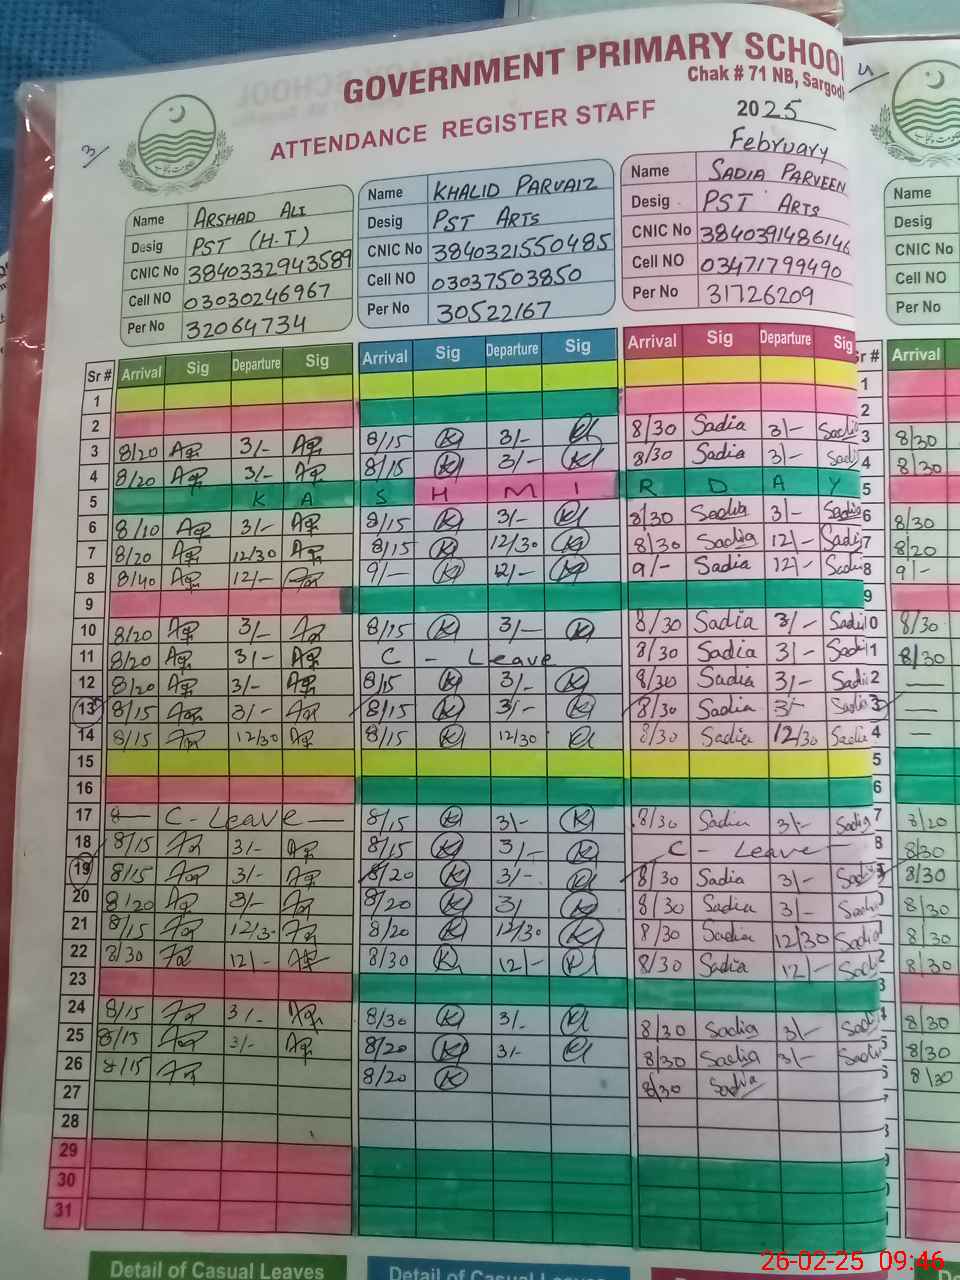 GOVERNMENT PRIMARY SCHOOL
Chak # 71 NB, Sargodh
ATTENDANCE REGISTER STAFF
2025
February
3
4
Name ARSHAD ALI
Desig PST (H.T)
CNIC No 3840332943589
Cell NO 03030246967
Per No 32064734
Name KHALID PARVAIZ
Desig PST ARTS
CNIC No 3840321550485
Cell NO 03037503850
Per No 30522167
Name SADIA PARVEEN
Desig PST ARTS
CNIC No 3840391486146
Cell NO 03471799490
Per No 31726209
Name
Desig
CNIC No
Cell NO
Per No
Sr # Arrival Sig Departure Sig Arrival Sig Departure Sig Arrival Sig Departure Sig Sr # Arrival
1 1
2 2
3 8/20 3/- 8/15 K 3/- K 8/30 Sadia 3/- Sadia 3 8/30
4 8/20 3/- 8/15 K 3/- K 8/30 Sadia 3/- Sadia 4 8/30
5 K A S H M I R D A Y 5
6 8/10 3/- 8/15 K 3/- K 8/30 Sadia 3/- Sadia 6 8/30
7 8/20 12/30 8/15 K 12/30 K 8/30 Sadia 12/- Sadia 7 8/20
8 8/40 12/- 9/- K 12/- K 9/- Sadia 12/- Sadia 8 9/-
9 9
10 8/20 3/- 8/15 K 3/- K 8/30 Sadia 3/- Sadia 0 8/30
11 8/20 3/- C - Leave 8/30 Sadia 3/- Sadia 1 8/30
12 8/20 3/- 8/15 K 3/- K 8/30 Sadia 3/- Sadia 2 —
13 8/15 3/- 8/15 K 3/- K 8/30 Sadia 3/- Sadia 3 —
14 8/15 12/30 8/15 K 12/30 K 8/30 Sadia 12/30 Sadia 4 —
15 5
16 6
17 C - Leave — 8/15 K 3/- K 8/30 Sadia 3/- Sadia 7 8/20
18 8/15 3/- 8/15 K 3/- K C - Leave — 8 8/30
19 8/15 3/- 8/20 K 3/- K 8/30 Sadia 3/- Sadia 8/30
20 8/20 3/- 8/20 K 3/ K 8/30 Sadia 3/- Sadia 8/30
21 8/15 12/30 8/20 K 12/30 K 8/30 Sadia 12/30 Sadia 8/30
22 8/30 12/- 8/30 K 12/- K 8/30 Sadia 12/- Sadia 2 8/30
23 3
24 8/15 3/- 8/30 K 3/- K 8/30 Sadia 3/- Sadia 8/30
25 8/15 3/- 8/20 K 3/- K 8/30 Sadia 3/- Sadia 5 8/30
26 8/15 8/20 K 8/30 Sadia 6 8/30
27
28
29
30
31
Detail of Casual Leaves Detail of Casual Leaves
26-02-25 09:46